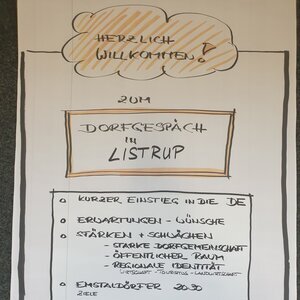 HERZLICH
WILLKOMMEN!
ZUM
DORFGESPÄCH
in
LISTRUP
KURZER EINSTIEG IN DIE DE
ERWARTUNGEN - WÜNSCHE
STÄRKEN + SCHWÄCHEN
- STARKE DORFGEMEINSCHAFT
- ÖFFENTLICHER RAUM
- REGIONALE IDENTITÄT
WIRTSCHAFT - TOURISTUS - LANDWIRTSCHAFT
EMSTALDÖRFER 2030
ZIELE